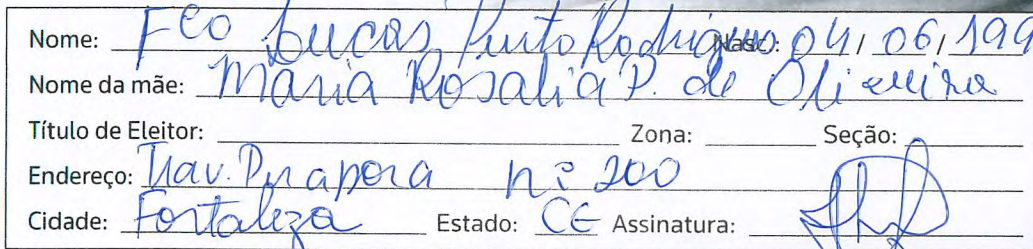 Nome: Fco Lucas Pinto Rodrigues Nasc.: 04/06/199
Nome da mãe: Maria Rosalia P. de Oliveira
Título de Eleitor: Zona: Seção:
Endereço: Trav. Pirapora nº 200
Cidade: Fortaleza Estado: CE Assinatura: